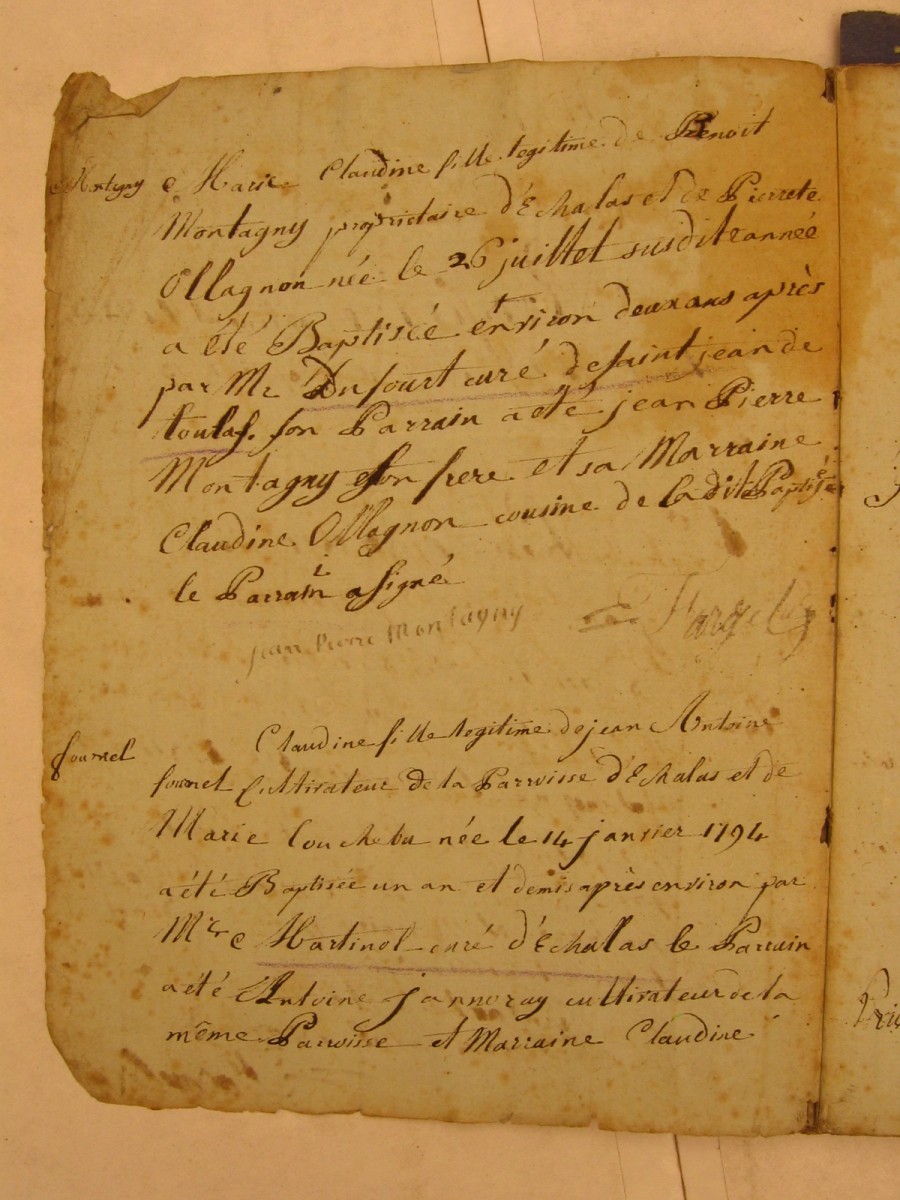 Montagny
Marie Claudine fille legitime de Benoit
Montagny propriétaire d'Echalas et de Pierrete
Ollagnon née le 26 juillet susdite année
a été Baptisée environ deux ans après
par Mr Dufourt curé de saint jean de
toulas. son Parrain a été jean Pierre
Montagny son frere et sa Marraine
Claudine Ollagnon cousine de ladite Baptisée
le Parrain a signé
jean Pierre Montagny
fournel
Claudine fille legitime de jean Antoine
fournel Cultivateur de la Parroisse d'Echalas et de
Marie née le 14 janvier 1794
a été Baptisée un an et demis après environ par
Mr Martinol curé d'Echalas le Parrain
a été Antoine jannoray cultivateur de la
même Parroisse et Marraine Claudine